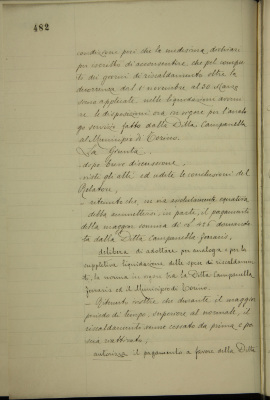 482
condizioni più che la medesima dichiari
per risvolto di acconsentire, che pel compu-
to dei giorni di riscaldamento oltre la
decorrenza dal 5 novembre al 20 Marzo
sieno applicate, nelle liquidazioni avveni-
re le disposizioni ora in vigore per l'analo-
go servizio fatto dalla Ditta Campanella
al Municipio di Torino.
La Giunta,
dopo breve discussione,
visti gli atti ed udite le conclusioni del
Relatore,
ritenuto che, in via assolutamente equitativa
debba ammettersi, in parte, il pagamento
della maggior somma di L. 425 domanda-
ta dalla Ditta Campanella Ignazio,
delibera di adottare per analogia e per la
suppletiva liquidazione delle spese di riscaldamen-
to, la norma in vigore tra la Ditta Campanella
Ignazio ed il Municipio di Torino.
– Ritenuto inoltre che durante il maggior
periodo di tempo, superiore al normale, il
riscaldamento venne cessato da prima e po-
scia riattivato,
autorizza il pagamento a favore della Ditta